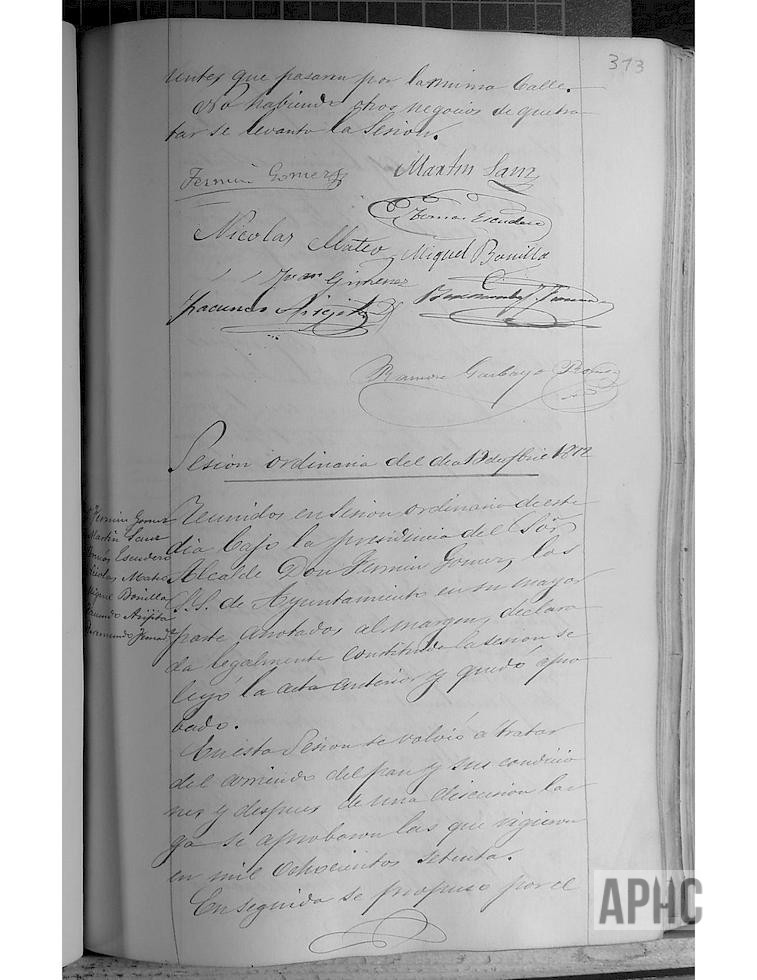 373
que pasaren por la misma Calle.
No habiendo otros negocios de que tra-
tar se levanto la Sesion.
Fermin Gomez
Martin Sanz
Escudero
Nicolas Mateo
Miguel Bonilla
Juan Gimenez
Arijita
Ramon Garbayo
Sesion ordinaria del dia 1872
Reunidos en Sesion ordinaria de este
dia bajo la presidencia del Sor
Alcalde Don Fermin Gomez, los
S.S. de Ayuntamiento en su mayor
parte anotados al margen, declara-
da legalmente constituida la sesion se
leyó la acta anterior y quedó apro-
bado.
Fermin Gomez
Martin Sanz
Tomás Escudero
Nicolas Mateo
Miguel Bonilla
Facundo Arijita
En esta Sesion se volvió a tratar
del arriendo del pan y sus condicio
nes y despues de una discusion lar
ga se aprobaron las que rigieron
en mil ochocientos setenta.
En seguida se propuso por el
APHC